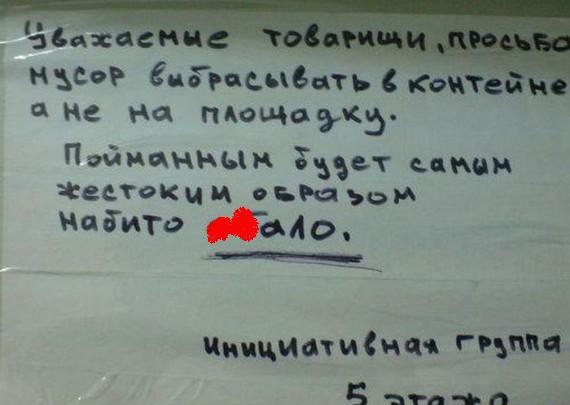 Уважаемые товарищи, просьба
мусор выбрасывать в контейне
а не на площадку.
Пойманным будет самым
жестоким образом
набито бало.
инициативная группа
5 этажа